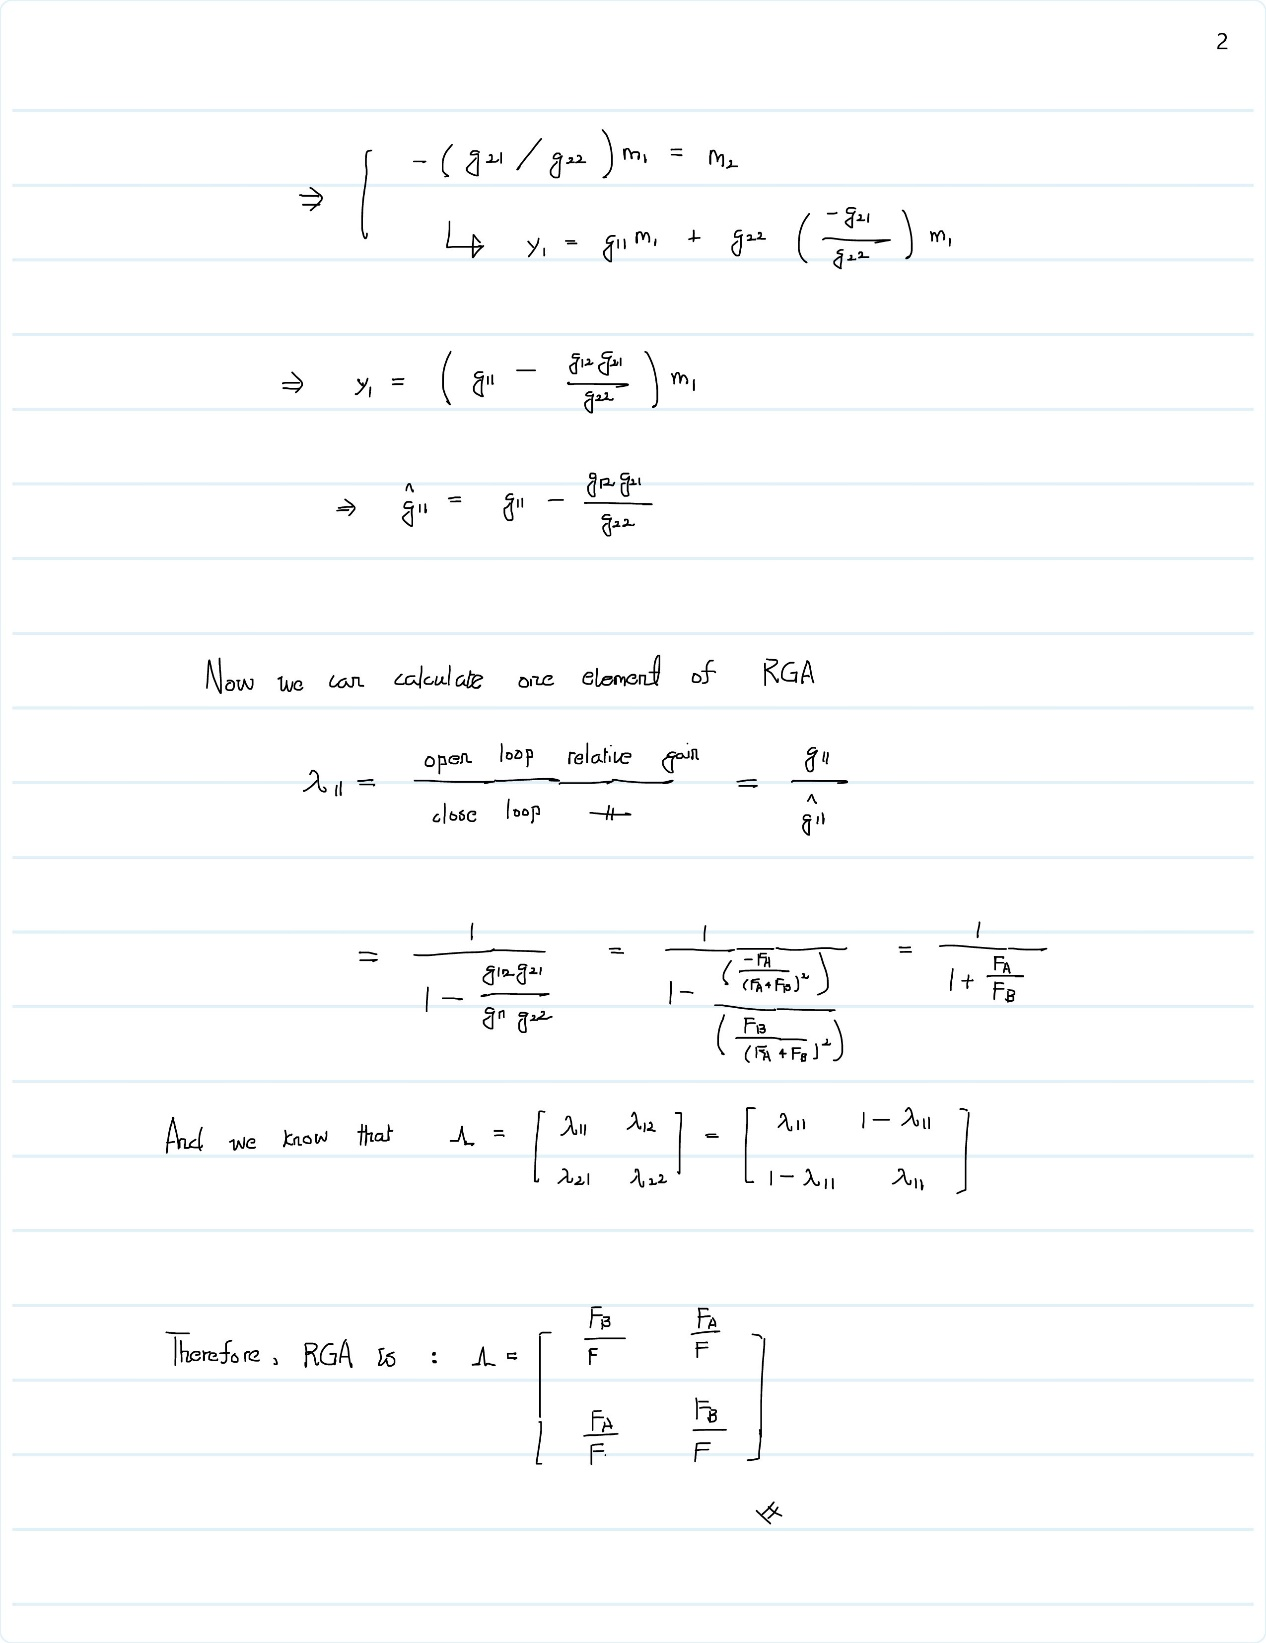 2
⇒ { -(g21 / g22) m1 = m2
↳ y1 = g11 m1 + g22 (-g21 / g22) m1
⇒ y1 = (g11 - g12 g21 / g22) m1
⇒ ĝ11 = g11 - g12 g21 / g22
Now we can calculate one element of RGA
λ11 = open loop relative gain / close loop 〃 = g11 / ĝ11
= 1 / (1 - g12 g21 / g11 g22) = 1 / (1 - (-FA / (FA+FB)²) / (FB / (FA+FB)²)) = 1 / (1 + FA / FB)
And we know that Λ = [λ11 λ12 ; λ21 λ22] = [λ11 1-λ11 ; 1-λ11 λ11]
Therefore, RGA is : Λ = [FB/F FA/F ; FA/F FB/F]
#